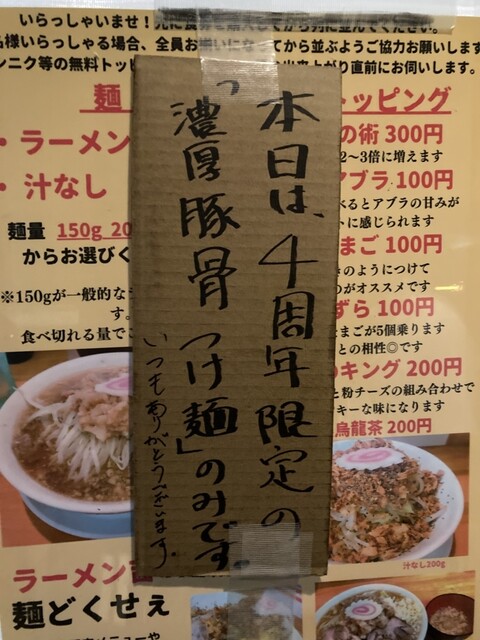 いらっしゃいませ！先に食券を購入してから列に並んでください。
名様いらっしゃる場合、全員お揃いになってから並ぶようご協力お願いします
ンニク等の無料トッピ
出来上がり直前にお伺いします。
本日は、4周年限定の
「濃厚豚骨つけ麺」のみです。
いつもありがとうございます。
麺
・ラーメン
・汁なし
麺量 150g 20
からお選びく
※150gが一般的な
す。
食べ切れる量でご
トッピング
の術 300円
2〜3倍に増えます
アブラ 100円
べるとアブラの甘みが
トに感じられます
まご 100円
きのようにつけて
のがオススメです
ずら 100円
まごが5個乗ります
との相性◎です
のキング 200円
と粉チーズの組み合わせで
キーな味になります
烏龍茶 200円
汁なし200g
ラーメン
麺どくせぇ
メニューや